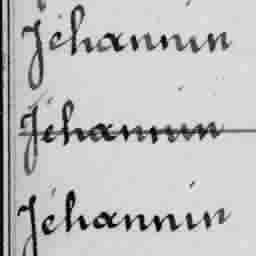 Jéhannin
Jéhannin
Jéhannin